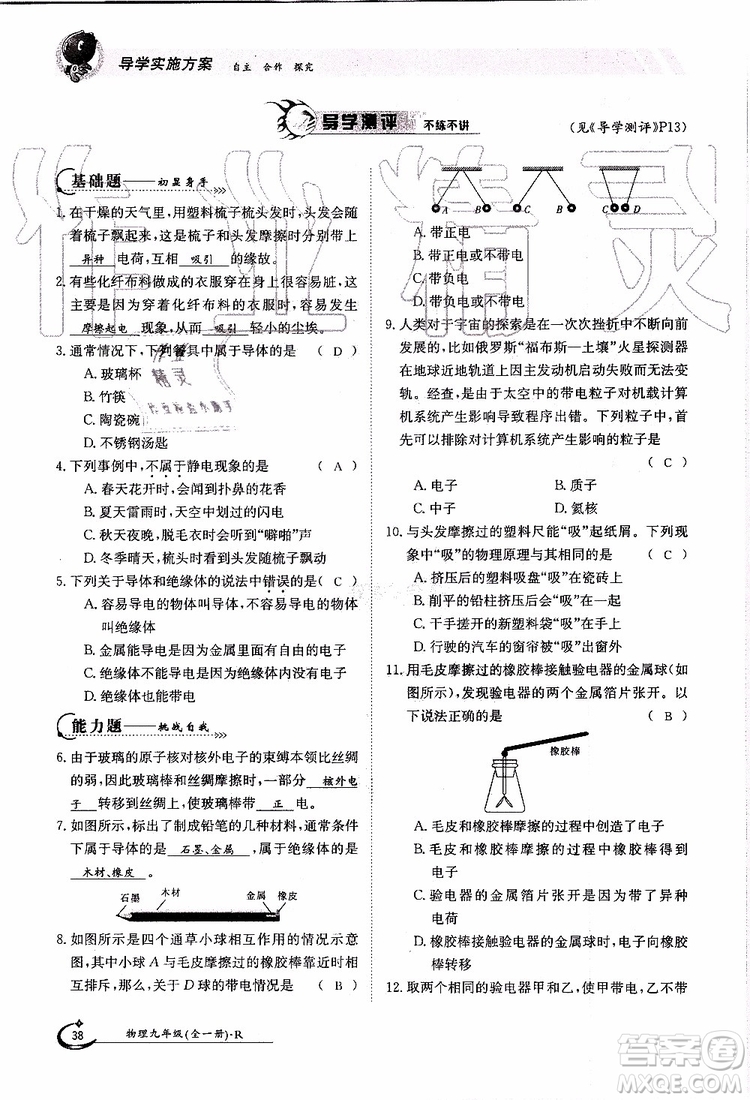 导学实施方案 自主 合作 探究
导学测评 不练不讲
(见《导学测评》P13)
基础题——初显身手
1. 在干燥的天气里,用塑料梳子梳头发时,头发会随
着梳子飘起来,这是梳子和头发摩擦时分别带上
异种 电荷,互相 吸引 的缘故。
2. 有些化纤布料做成的衣服穿在身上很容易脏,这
主要是因为穿着化纤布料的衣服容易发生
摩擦起电 现象,从而 吸引 轻小的尘埃。
3. 通常情况下,下列餐具中属于导体的是 ( D )
A. 玻璃杯
B. 竹筷
C. 陶瓷碗
D. 不锈钢汤匙
4. 下列事例中,不属于静电现象的是 ( A )
A. 春天花开时,会闻到扑鼻的花香
B. 夏天雷雨时,会看到划过天空的闪电
C. 秋天夜晚,脱毛衣时会听到“噼啪”声
D. 冬季晴天,梳头时头发会随梳子飘动
5. 下列关于导体和绝缘体的说法中错误的是( C )
A. 容易导电的物体叫导体,不容易导电的物体
叫绝缘体
B. 金属能够导电是因为金属内有大量的自由
电子
C. 绝缘体不能导电是因为绝缘体内没有电子
D. 绝缘体也能带电
能力题——挑战自我
6. 由于玻璃的原子核对核外电子的束缚本领比丝绸
的弱,因此玻璃棒和丝绸摩擦时,一部分 核外电
子 转移到丝绸上,使玻璃棒带 正 电。
7. 如图所示,标出了制成铅笔的几种材料,通常条件
下属于导体的是 石墨、金属 ,属于绝缘体的是
木材、橡皮 。
石墨 木材 金属 橡皮
8. 如图所示是四个通草小球相互作用的情况示意
图,其中小球 A 与毛皮摩擦过的橡胶棒靠近时相
互排斥,那么,关于 D 球的带电情况是 ( B )
A B B C C D
A. 带正电
B. 带正电或不带电
C. 带负电
D. 带负电或不带电
9. 人类对于宇宙的探索是在一次次挫折中不断向前
发展的,比如俄罗斯“福布斯—土壤”火星探测器
在地球近地轨道上因主发动机启动失败而无法变
轨。经查,是由于太空中带电粒子对机载计算
机系统产生影响导致程序出错。下列粒子中,首
先可以排除对计算机系统产生影响的粒子是
( C )
A. 电子 B. 质子
C. 中子 D. 氦核
10. 与头发摩擦过的塑料尺能“吸”起纸屑。下列现
象中“吸”的物理原理与其相同的是 ( C )
A. 挤压后的塑料挂钩能“吸”在瓷砖上
B. 削平的铅柱挤压后会“吸”在一起
C. 干手搓开的新塑料袋会“吸”在手上
D. 行驶的汽车的窗帘被“吸”出窗外
11. 用毛皮摩擦过的橡胶棒接触验电器的金属球(如
图所示),发现验电器的两个金属箔片张开。以
下说法正确的是 ( B )
橡胶棒
A. 毛皮和橡胶棒摩擦的过程中创造了电子
B. 毛皮和橡胶棒摩擦的过程中橡胶棒得到
电子
C. 验电器的金属箔片张开是因为带了异种
电荷
D. 橡胶棒接触验电器的金属球时,电子向橡胶
棒转移
12. 取两个相同的验电器甲和乙,使甲带电,乙不带
38 物理九年级(全一册)·R
精灵
答案圈
MXQE.COM